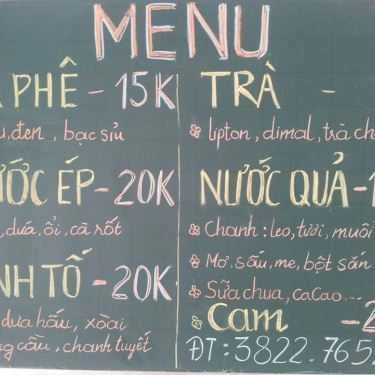 MENU
PHÊ - 15K
đen, bạc sỉu
ƯỚC ÉP - 20K
dứa, ổi, cà rốt
NH TỐ - 20K
dưa hấu, xoài
cầu, chanh tuyết
TRÀ -
lipton, dimal, trà ch
NƯỚC QUẢ - 1
Chanh: leo, tươi, muối
Mơ. sấu, me, bột sắn
Sữa chua, caCao...
Cam - 2
ĐT: 3822.765